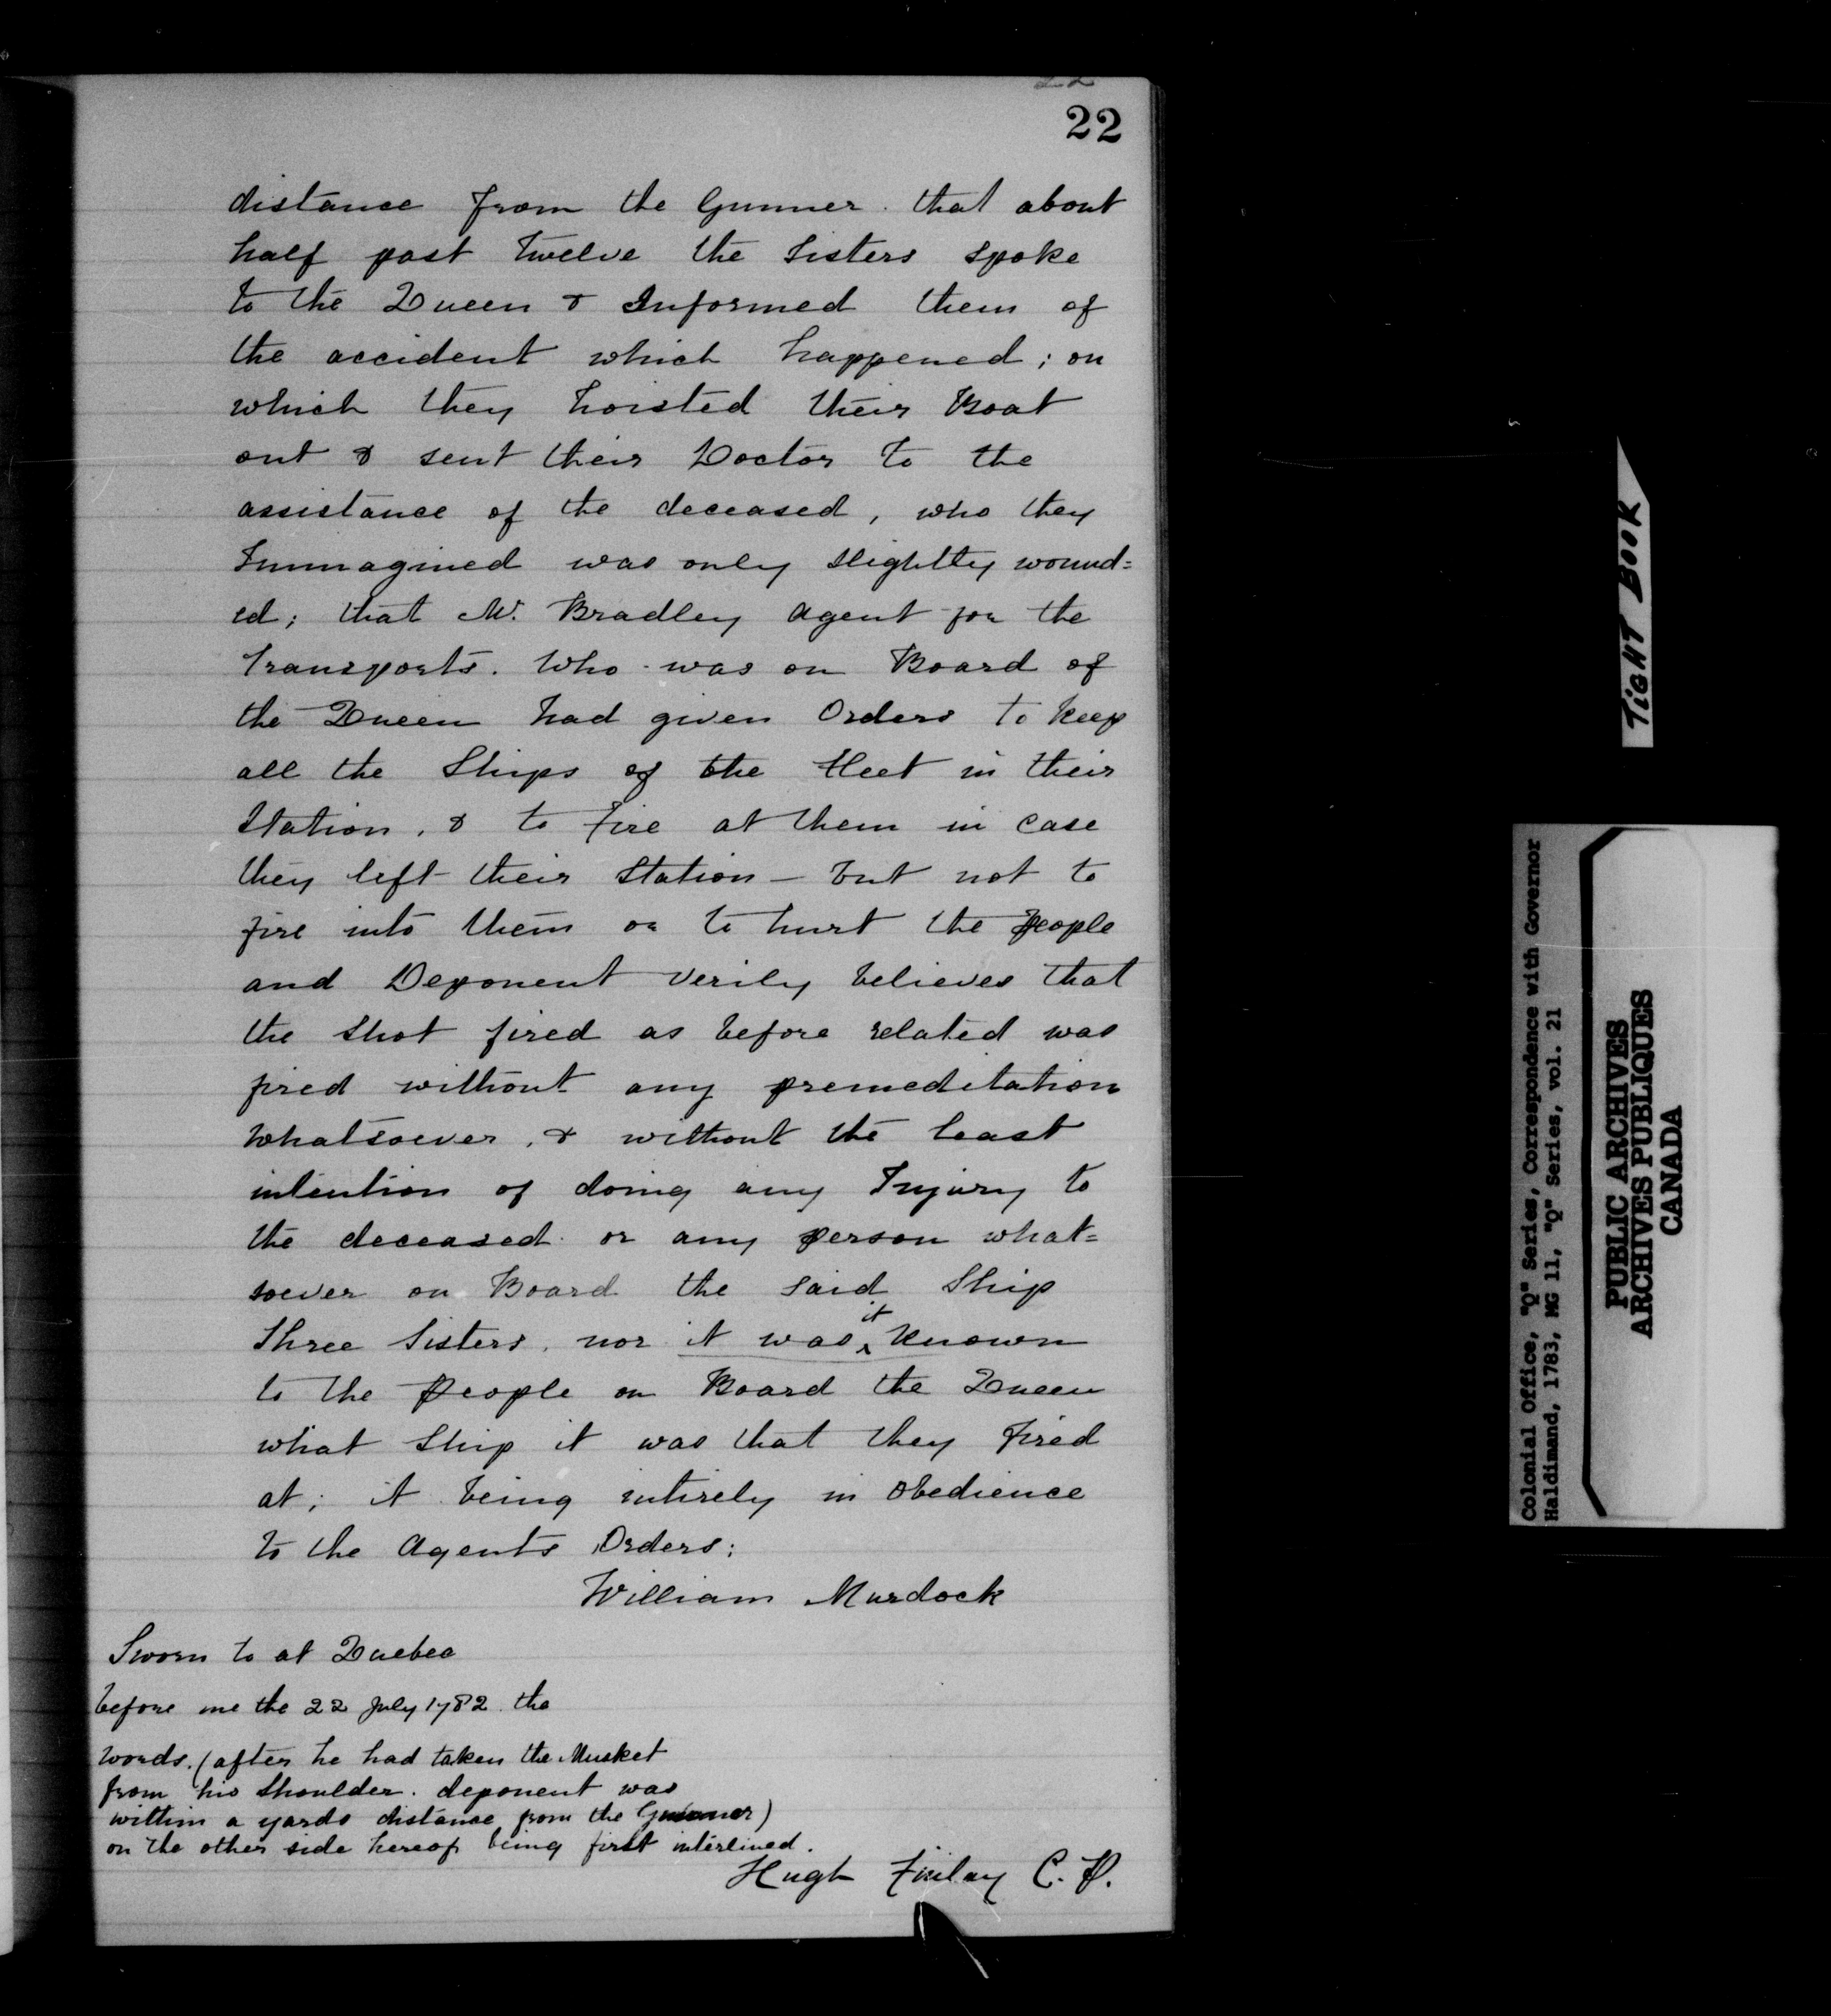 22
distance from the Gunner. that about
half past twelve the Sisters spoke
to the Queen & Informed them of
the accident which happened; on
which they hoisted their Boat
out & sent their Doctor to the
assistance of the deceased, who they
Immagined was only slightly wound=
ed; that Mr. Bradley Agent for the
Transports. Who was on Board of
the Queen had given Orders to keep
all the Ships of the fleet in their
Station, & to fire at them in case
they left their Station - but not to
fire into them or to hurt the People
and Deponent verily believes that
the shot fired as before related was
fired without any premeditation
Whatsoever, & without the least
intention of doing any Injury to
the deceased or any person what=
soever on Board the said Ship
Three Sisters, nor it was it known
to the People on Board the Queen
what Ship it was that they fired
at; it being intirely in obedience
to the Agents Orders:
William Murdock
Sworn to at Quebec
before me the 22 July 1782 the
words. (after he had taken the Musket
from his shoulder. deponent was
within a yards distance from the Gunner)
on the other side hereof being first interlined.
Hugh Finlay C. P.
TIGHT BOOK
Colonial Office, "Q" Series, Correspondence with Governor
Haldimand, 1783, MG 11, "Q" Series, vol. 21
PUBLIC ARCHIVES
ARCHIVES PUBLIQUES
CANADA